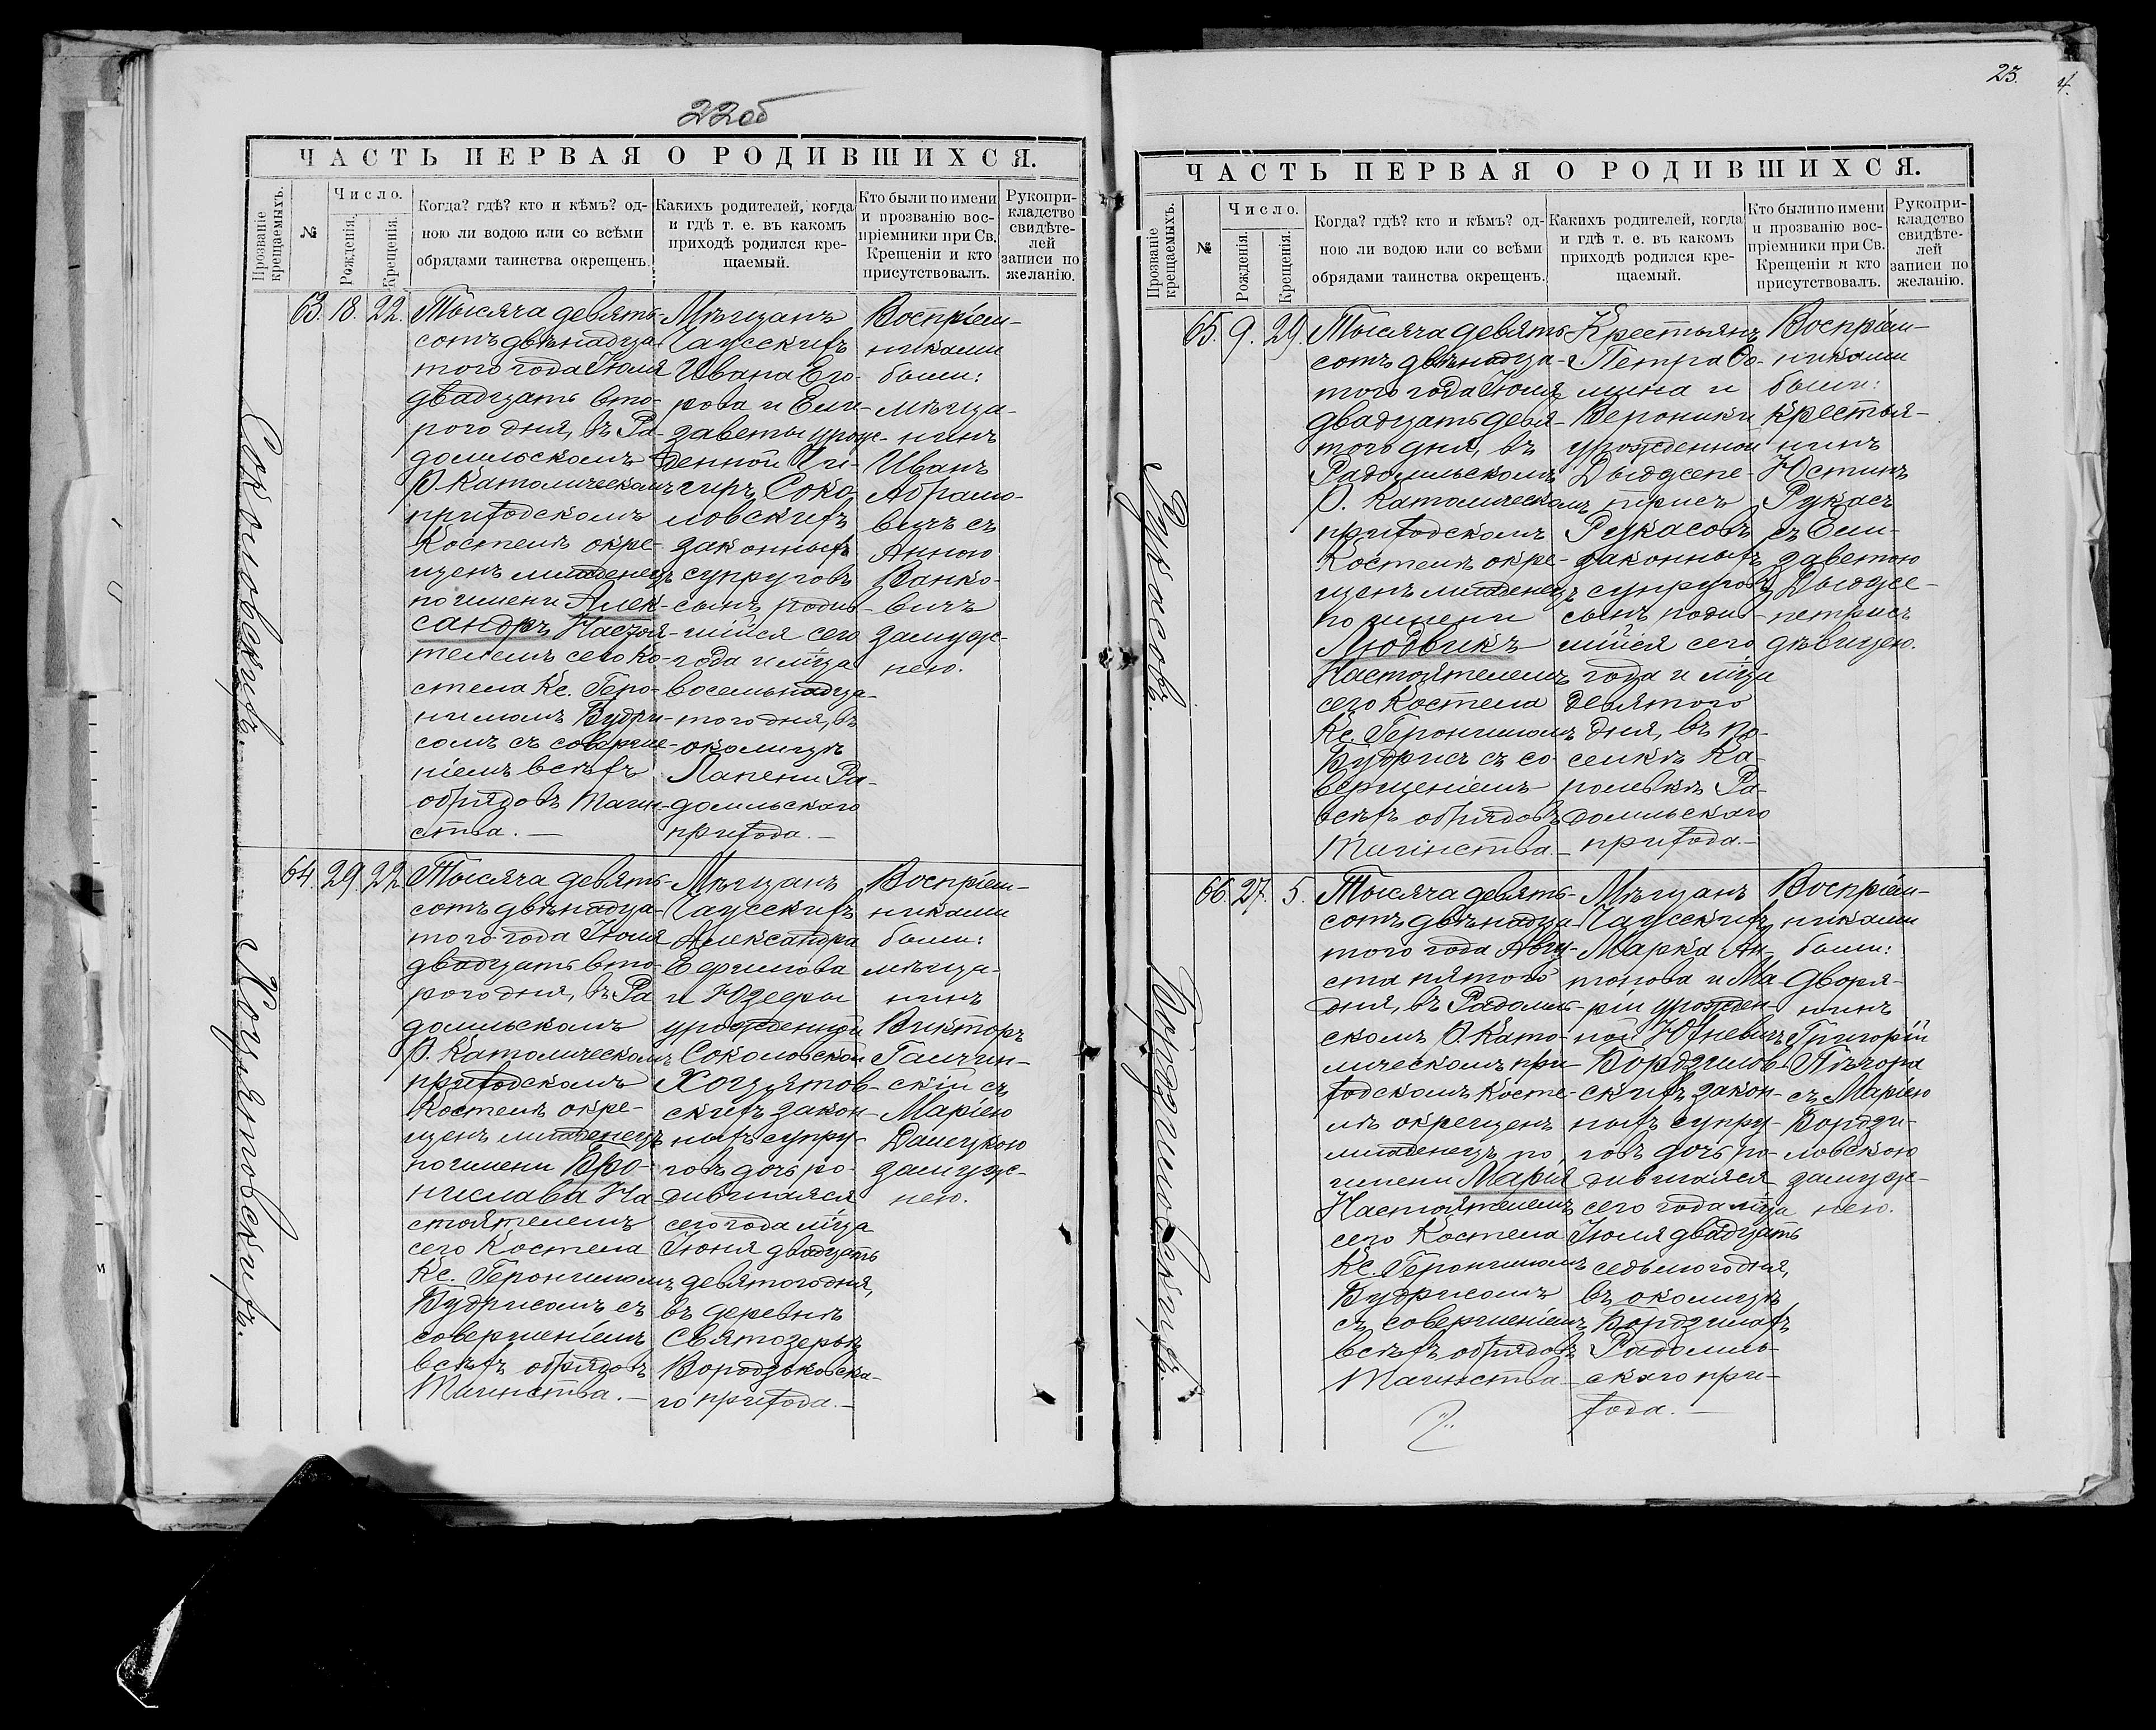 22об
ЧАСТЬ ПЕРВАЯ О РОДИВШИХСЯ.
Прозваніе
крещаемыхъ.
№
Число.
Рожденія.
Крещенія.
Когда? гдѣ? кто и кѣмъ? од-
ною ли водою или со всѣми
обрядами таинства окрещенъ.
Какихъ родителей, когда
и гдѣ т. е. въ какомъ
приходѣ родился кре-
щаемый.
Кто были по имени
и прозванію вос-
пріемники при Св.
Крещеніи и кто
присутствовалъ.
Рукопри-
кладство
свидѣте-
лей
записи по
желанію.
Соколовскихъ.
63. 18. 22.
Тысяча девять-
сотъ двѣнадца-
того года Іюля
двадцать вто-
рого дня, въ Ра-
домльскомъ
Р. Католическомъ
приходскомъ
Костелѣ окре-
щенъ младенецъ
по имени Алек-
сандръ Настоя-
телемъ сего Ко-
стела Кс. Геро-
нимомъ Будри-
сомъ съ соверше-
ніемъ всѣхъ
обрядовъ Таин-
ства.—
Мѣщанъ
Чаусскихъ
Ивана Его-
рова и Ели-
заветы урож-
денной
Соко-
ловскихъ
законныхъ
супруговъ
сынъ родив-
шійся сего
года и м̃ца
восемьнадца-
того дня, въ
околицѣ
Лапени Ра-
домльского
прихода.—
Воспріем-
никами
были:
мѣща-
нинъ
Иванъ
Абрамо-
вичъ съ
Анною
Ванко-
вичъ
замуж-
нею.
Хоцянтовскихъ.
64. 29. 22
Тысяча девять-
сотъ двѣнадца-
того года Іюля
двадцать вто-
рого дня, въ Ра
домльскомъ
Р. Католическомъ
приходскомъ
Костелѣ окре-
щенъ младенецъ
по имени Бро-
нислава На-
стоятелемъ
сего Костела
Кс. Геронимомъ
Будрисомъ съ
совершеніемъ
всѣхъ обрядовъ
Таинства.—
Мѣщанъ
Чаусскихъ
Александра
Ефимова
и Юзефы
урожденной
Соколовской
Хоцянтов-
скихъ закон-
ныхъ супру-
говъ дочь ро-
дившаяся
сего года м̃ца
Іюня двадцать
девятого дня,
въ деревнѣ
Святозеры
Вородьковска-
го прихода.—
Воспріем-
никами
были:
мѣща-
нинъ
Викторъ
Галчин-
скій съ
Маріею
Далецкою
замуж-
нею.
23.
4.
ЧАСТЬ ПЕРВАЯ О РОДИВШИХСЯ.
Прозваніе
крещаемыхъ.
№
Число.
Рожденія.
Крещенія.
Когда? гдѣ? кто и кѣмъ? од-
ною ли водою или со всѣми
обрядами таинства окрещенъ.
Какихъ родителей, когда
и гдѣ т. е. въ какомъ
приходѣ родился кре-
щаемый.
Кто были по имени
и прозванію вос-
пріемники при Св.
Крещеніи и кто
присутствовалъ.
Рукопри-
кладство
свидѣте-
лей
записи по
желанію.
Рукасовъ.
65. 9. 29.
Тысяча девять-
сотъ двѣнадца-
того года Іюля
двадцать девя-
того дня, въ
Радомльскомъ
Р. Католическомъ
приходскомъ
Костелѣ окре-
щенъ младенецъ
по имени
Людвикъ
Настоятелемъ
сего Костела
Кс. Геронимомъ
Будрисъ съ со
вершеніемъ
всѣхъ обрядовъ
Таинства.—
Крестьянъ
Петра Ѳо-
мина и
Вероники
урожденной
Дыджпе-
трисъ
Рукасовъ
законныхъ
супруговъ
сынъ родив-
шійся сего
года и м̃ца
девятого
дня, въ по-
селкѣ Ка-
ролевкѣ Ра-
домльского
прихода.—
Воспріем-
никами
были:
крестья-
нинъ
Юстинъ
Рукасъ
съ Ели-
заветою
Дыдже-
петрисъ
дѣвицею.
Бордзиловскихъ.
66. 27. 5.
Тысяча девять-
сотъ двѣнадца
того года Авгу-
ста пятого
дня, въ Радомль-
скомъ Р. Като-
лическомъ при-
ходскомъ Косте-
лѣ окрещенъ
младенецъ по
имени Марія
Настоятелемъ
сего Костела
Кс. Геронимомъ
Будрисомъ
съ совершеніемъ
всѣхъ обрядовъ
Таинства—
Мѣщанъ
Чаусскихъ
Марка Ан-
тонова и Ма-
ріи урожден-
ной Юхневичъ
Бордзилов-
скихъ закон-
ныхъ супру-
говъ дочь ро-
дившаяся
сего года м̃ца
Іюля двадцать
седьмого дня,
въ околицѣ
Бордзилахъ
Радомль-
ского при-
хода.—
Воспріем-
никами
были:
Дворя-
нинъ
Григорій
съ Маріею
Бордзи-
ловскою
замуж-
нею.